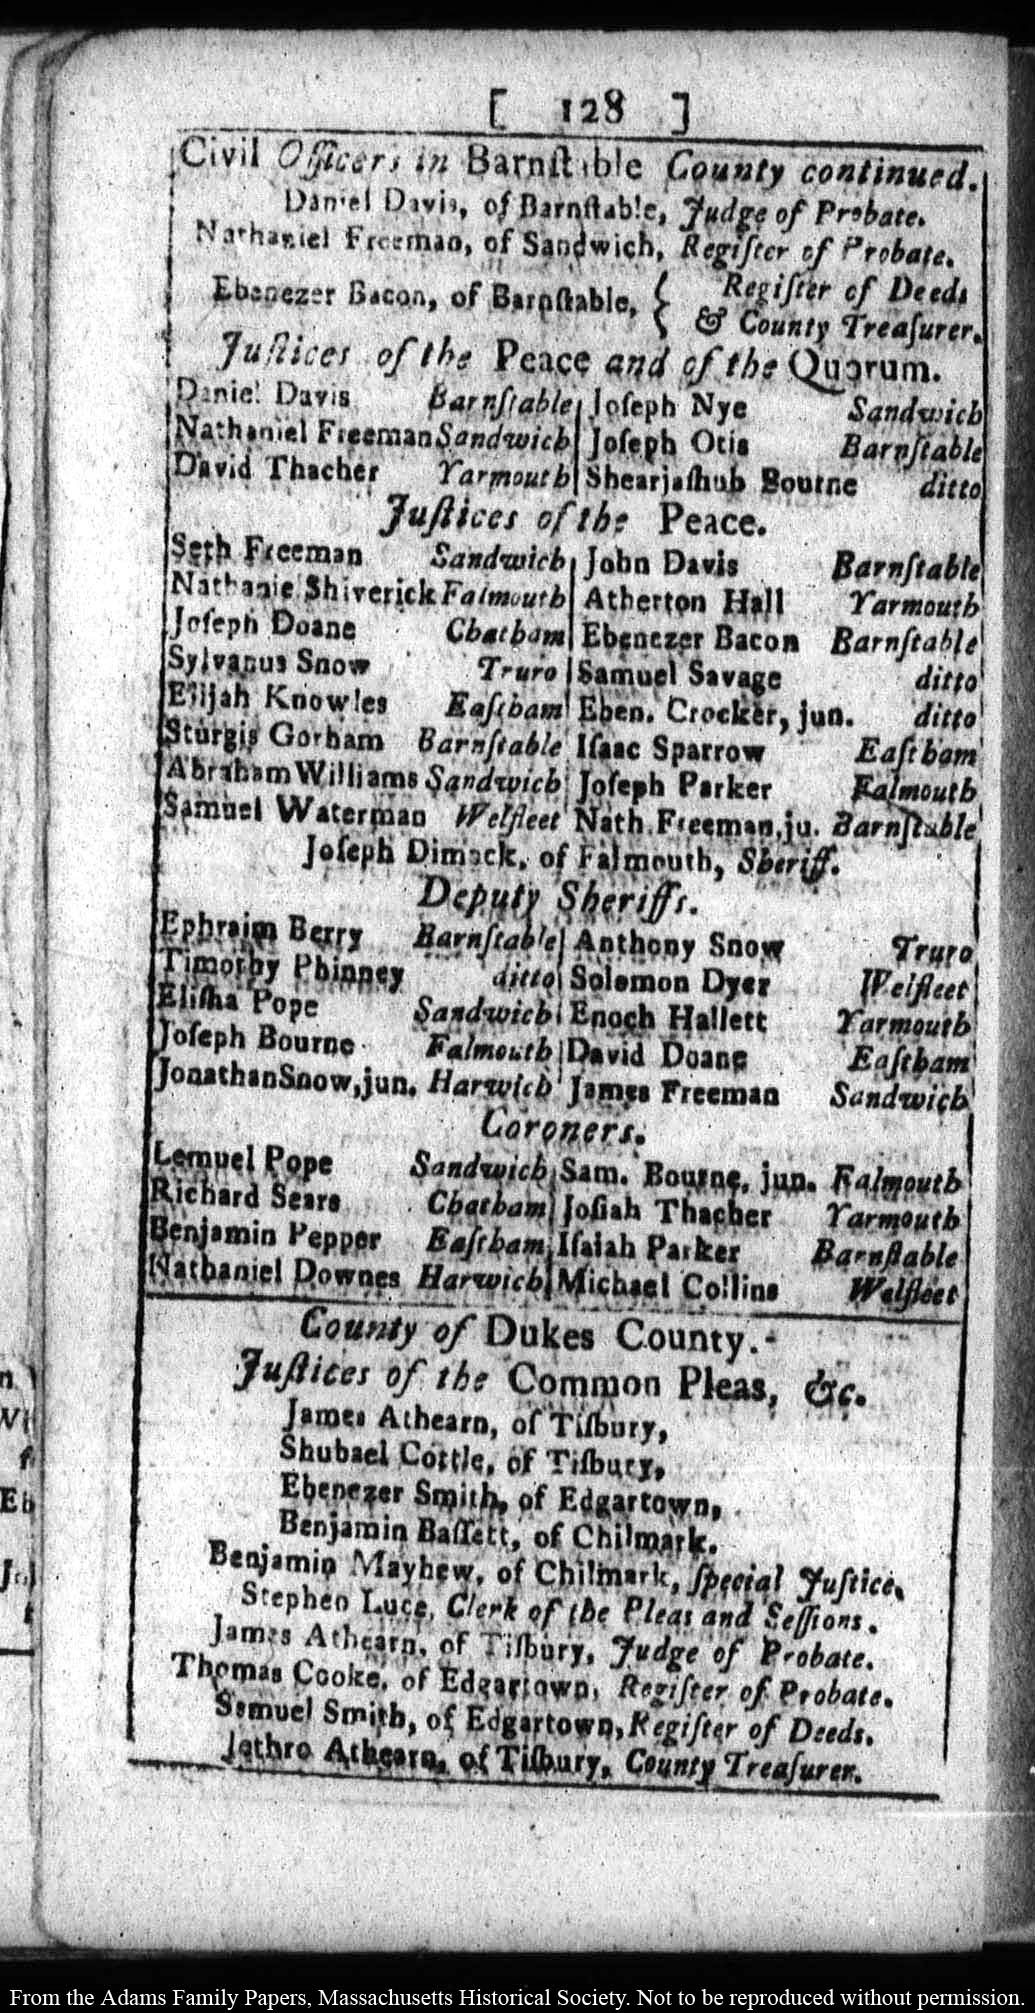 [ 128 ]
Civil Officers in Barnſtable County continued.
Daniel Davis, of Barnſtable, Judge of Probate.
Nathaniel Freeman, of Sandwich, Regiſter of Probate.
Ebenezer Bacon, of Barnſtable, { Regiſter of Deeds
& County Treaſurer.
Juſtices of the Peace and of the Quorum.
Daniel Davis Barnſtable Joſeph Nye Sandwich
Nathaniel Freeman Sandwich Joſeph Otis Barnſtable
David Thacher Yarmouth Shearjaſhub Bourne ditto
Juſtices of the Peace.
Seth Freeman Sandwich John Davis Barnſtable
Nathanie Shiverick Falmouth Atherton Hall Yarmouth
Joſeph Doane Chatham Ebenezer Bacon Barnſtable
Sylvanus Snow Truro Samuel Savage ditto
Elijah Knowles Eaſtham Eben. Crocker, jun. ditto
Sturgis Gorham Barnſtable Iſaac Sparrow Eaſtham
Abraham Williams Sandwich Joſeph Parker Falmouth
Samuel Waterman Welfleet Nath. Freeman, ju. Barnſtable
Joſeph Dimock, of Falmouth, Sheriff.
Deputy Sheriffs.
Ephraim Berry Barnſtable Anthony Snow Truro
Timothy Phinney ditto Solomon Dyer Welfleet
Eliſha Pope Sandwich Enoch Hallett Yarmouth
Joſeph Bourne Falmouth David Doane Eaſtham
Jonathan Snow, jun. Harwich James Freeman Sandwich
Coroners.
Lemuel Pope Sandwich Sam. Bourne, jun. Falmouth
Richard Sears Chatham Joſiah Thacher Yarmouth
Benjamin Pepper Eaſtham Iſaiah Parker Barnſtable
Nathaniel Downes Harwich Michael Collins Welfleet
County of Dukes County.
Juſtices of the Common Pleas, &c.
James Athearn, of Tiſbury,
Shubael Cottle, of Tiſbury,
Ebenezer Smith, of Edgartown,
Benjamin Baſſett, of Chilmark.
Benjamin Mayhew, of Chilmark, ſpecial Juſtice.
Stephen Luce, Clerk of the Pleas and Seſſions.
James Athearn, of Tiſbury, Judge of Probate.
Thomas Cooke, of Edgartown, Regiſter of Probate.
Samuel Smith, of Edgartown, Regiſter of Deeds.
Jethro Athearn, of Tiſbury, County Treaſurer.
From the Adams Family Papers, Massachusetts Historical Society. Not to be reproduced without permission